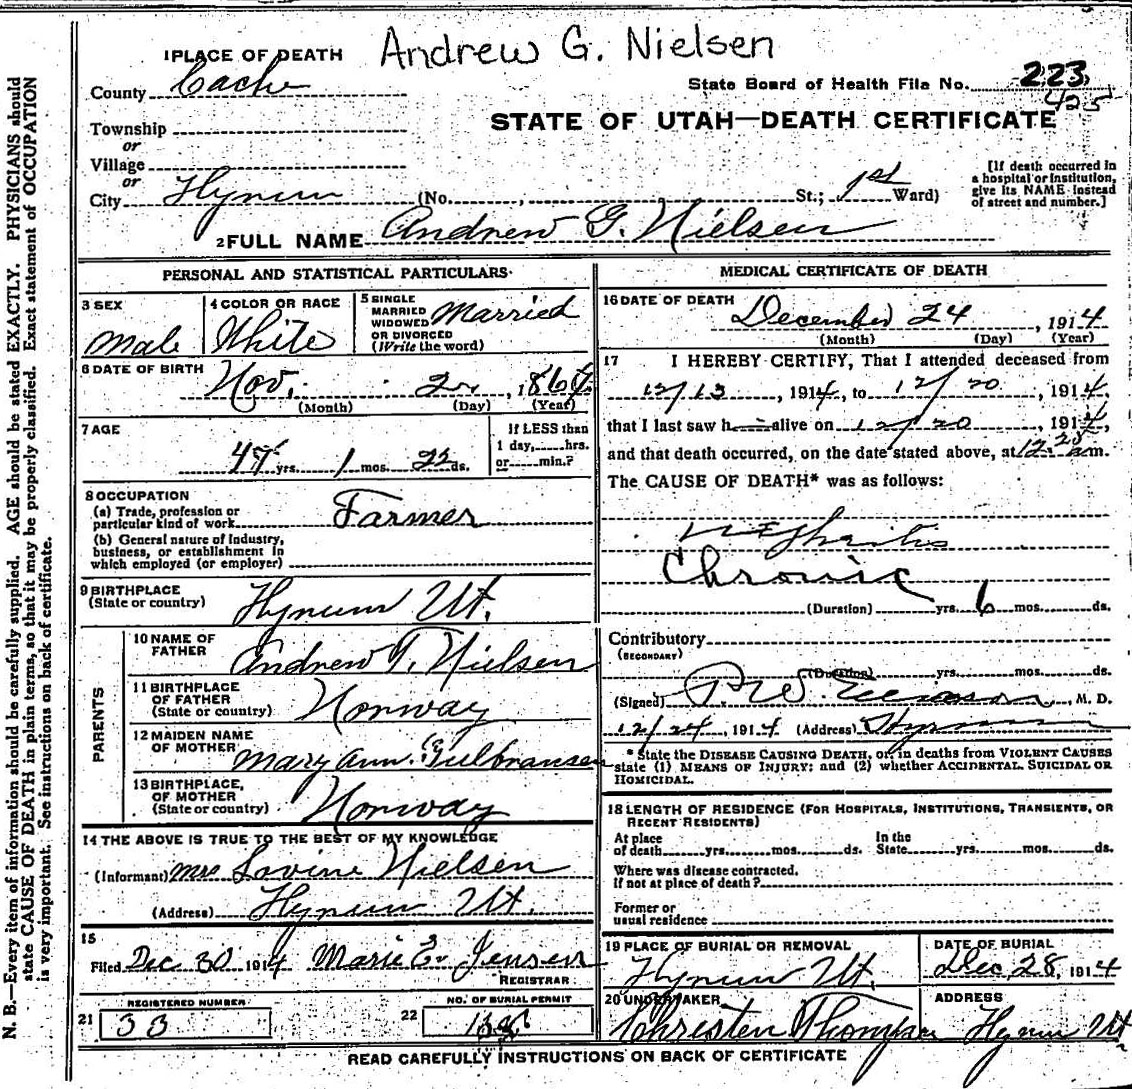 Andrew G. Nielsen
1 PLACE OF DEATH
County Cache
State Board of Health File No. 223
425
Township
or
Village
or
City Hyrum (No. , St.; 1st Ward)
STATE OF UTAH—DEATH CERTIFICATE
[If death occurred in
a hospital or institution,
give its NAME instead
of street and number.]
2 FULL NAME Andrew G. Nielsen
PERSONAL AND STATISTICAL PARTICULARS
3 SEX
Male
4 COLOR OR RACE
White
5 SINGLE
MARRIED
WIDOWED
OR DIVORCED
(Write the word)
Married
6 DATE OF BIRTH
Nov. 2 , 186
(Month) (Day) (Year)
7 AGE
yrs. 1 mos. 22 ds.
If LESS than
1 day, hrs.
or min.?
8 OCCUPATION
(a) Trade, profession or
particular kind of work Farmer
(b) General nature of industry,
business, or establishment in
which employed (or employer)
9 BIRTHPLACE
(State or country) Hyrum Ut.
PARENTS
10 NAME OF
FATHER Andrew T. Nielsen
11 BIRTHPLACE
OF FATHER
(State or country) Norway
12 MAIDEN NAME
OF MOTHER Mary Ann Gulbransen
13 BIRTHPLACE,
OF MOTHER
(State or country) Norway
14 THE ABOVE IS TRUE TO THE BEST OF MY KNOWLEDGE
(Informant) Mrs Lovine Nielsen
(Address) Hyrum Ut.
15
Filed Dec 30 1914 Marie E. Jensen
REGISTRAR
REGISTERED NUMBER
21 33
NO. OF BURIAL PERMIT
22
MEDICAL CERTIFICATE OF DEATH
16 DATE OF DEATH
December 24 , 1914
(Month) (Day) (Year)
17 I HEREBY CERTIFY, That I attended deceased from
12/13 , 1914, to 12/20 1914,
that I last saw h alive on 12/20 , 1914,
and that death occurred, on the date stated above, at m.
The CAUSE OF DEATH* was as follows:
Nephritis
Chronic
(Duration) yrs. 6 mos. ds.
Contributory
(SECONDARY)
(Duration) yrs. mos. ds.
(Signed) , M. D.
12/24 , 1914 (Address) Hyrum
* State the DISEASE CAUSING DEATH, or, in deaths from VIOLENT CAUSES
state (1) MEANS OF INJURY; and (2) whether ACCIDENTAL, SUICIDAL OR
HOMICIDAL.
18 LENGTH OF RESIDENCE (FOR HOSPITALS, INSTITUTIONS, TRANSIENTS, OR
RECENT RESIDENTS)
At place
of death yrs. mos. ds.
In the
State yrs. mos. ds.
Where was disease contracted.
If not at place of death?
Former or
usual residence
19 PLACE OF BURIAL OR REMOVAL
Hyrum Ut.
DATE OF BURIAL
Dec 28, 1914
20 UNDERTAKER
Christen Thompson
ADDRESS
Hyrum Ut
READ CAREFULLY INSTRUCTIONS ON BACK OF CERTIFICATE
N. B.—Every item of information should be carefully supplied. AGE should be stated EXACTLY. PHYSICIANS should
state CAUSE OF DEATH in plain terms, so that it may be properly classified. Exact statement of OCCUPATION
is very important. See instructions on back of certificate.